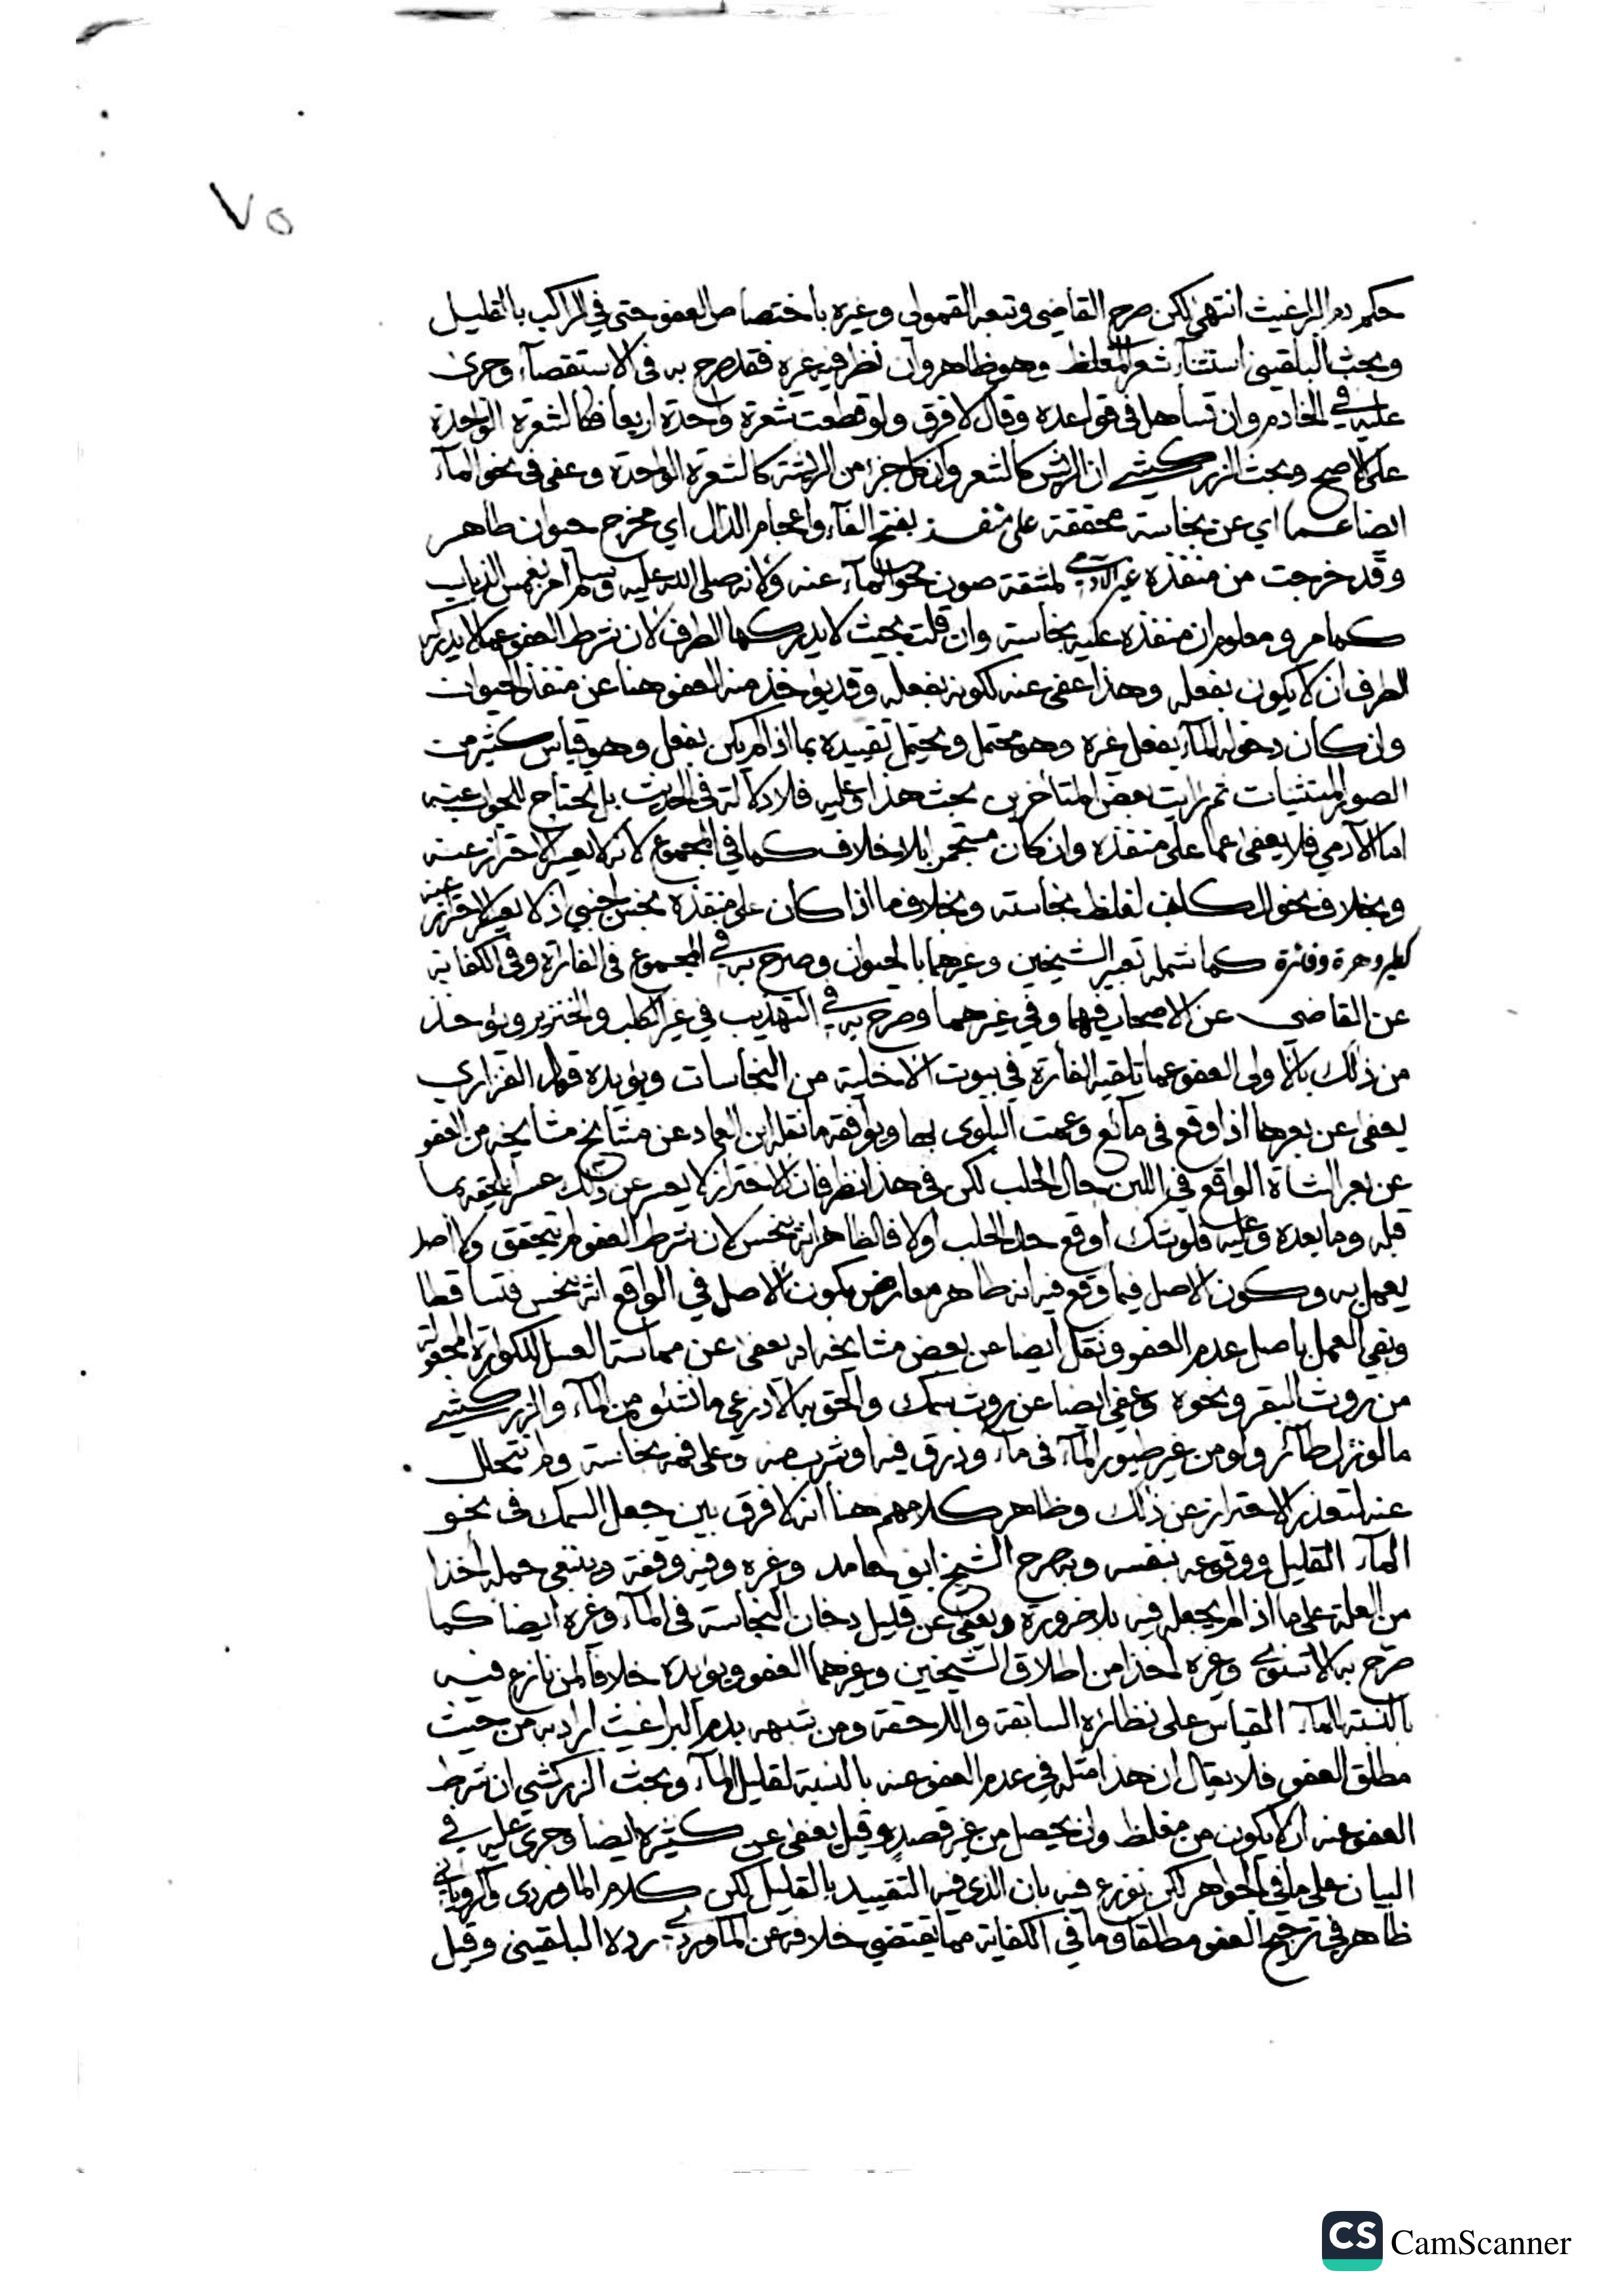 ٧٥
حكم دم البراغيث انتهى لكن صرح القاضي وتبعه القمولي وغيره باختصاص العفو حتى في الراكب بالقليل
وبحث البلقيني استثنآء شعر المغلظ وهو ظاهر وان نظر فيه غيره فقد صرح به في الاستقصآء وجرى
عليه في الخادم وان تساهل في قواعده وقال لا فرق ولو قطعت شعرة واحدة اربعا فكالشعرة الواحدة
على الاصح وبحث الزركشي ان الريش كالشعر وان كل جزء من الريشة كالشعرة الواحدة وعفي في نحو المآء
ايضا عما اي عن نجاسة محققة على منفذ بفتح الفآء واعجام الذال اي مخرج حيوان طاهر
وقد خرجت من منفذه غير الآدمي لمشقة صون نحو المآء عنه ولانه صلى الله عليه وسلم امر بغمس الذباب
كما مر ومعلوم ان منفذه عليه نجاسة وان قلت بحيث لا يدركها الطرف لان شرط العفو عما لا يدركه
الطرف ان لا يكون بفعله وهذا عفي عنه لكونه بفعله وقد يؤخذ منه العفو هنا عن منفذ الحيوان
وان كان دخوله المآء بفعل غيره وهو محتمل ويحتمل تقييده بما اذا لم يكن بفعل وهو قياس كثير من
الصور المستثنيات ثم رايت بعض المتأخرين بحث هذا وعليه فلا دلالة في الحديث بل يحتاج للجواب عنه
اما الآدمي فلا يعفى عما على منفذه وان كان مستجمرا بلا خلاف كما في المجموع لانه لا يعسر الاحتراز عنه
وبخلاف نحو الكلب لغلظ نجاسته وبخلاف ما اذا كان على منفذه نجس اجنبي اذ لا يعسر الاحتراز عنه
كطير وهرة وفأرة كما شمله تعبير الشيخين وغيرهما بالحيوان وصرح به في المجموع في الفارة وفي الكفاية
عن القاضي عن الاصحاب فيهما وفي غيرهما وصرح به في التهذيب في غير الكلب والخنزير ويؤخذ
من ذلك بالاولى العفو عما تلقيه الفأرة في بيوت الاخلية من النجاسات ويؤيده قول الفزاري
يعفى عن بعرها اذا وقع في مائع وعمت البلوى بها ويوافقه ما نقله ابن العماد عن مشايخ مشايخه من العفو
عن بعر الشاة الواقع في اللبن حال الحلب لكن في هذا نظر فان الاحتراز لا يعسر عن ذلك عسرا يلحقه بما
قبله وما بعده وعليه فلو شك أوقع حال الحلب اولا فالظاهر انه ينجس لان شرط العفو لم يتحقق ولا اصل
يعمل به وكون الاصل فيما وقع فيه انه طاهر معارض بكون الاصل في الواقع انه ينجس فتساقطا
وبقي العمل باصل عدم العفو ونقل ايضا عن بعض مشايخه انه يعفى عن مماسة العسل للكوارة المجعولة
من روث البقر ونحوه وعفي ايضا عن روث سمك والحق به الاذرعي ما نشئه من المآء والزركشي
ما لو نزل طآئر ولو من غير طيور المآء في مآء وذرق فيه او شرب منه وعلى فمه نجاسة ولم تتحلل
عنه لتعذر الاحتراز عن ذلك وظاهر كلامهم هنا انه لا فرق بين جعل السمك في نحو
المآء القليل ووقوعه بنفسه وبه صرح الشيخ ابو حامد وغيره وفيه وقفة وينبغي حمله اخذا
من العلة على ما اذا لم يجعله فيه بلا ضرورة ويعفى عن قليل دخان النجاسة في المآء وغيره ايضا كما
صرح به الاسنوي وغيره اخذا من اطلاق الشيخين وغيرهما العفو ويؤيده خلافا لمن نازع فيه
بالنسبة للمآء القياس على نظائره السابقة واللاحقة ومن شبهه بدم البراغيث اراد به من حيث
مطلق العفو فلا يقال ان هذا مثله في عدم العفو عنه بالنسبة لقليل المآء وبحث الزركشي ان شرط
العفو عنه ان لا يكون من مغلظ وان يحصل من غير قصده وقيل يعفى عن كثيره ايضا وجرى عليه في
البيان على ما في الجواهر لكن نوزع فيه بان الذي فيه التقييد بالقليل لكن كلام الماوردي والروياني
ظاهر في ترجيح العفو مطلقا وما في الكفاية مما يقتضي خلافه عن الماوردي رده البلقيني وقيل
CS CamScanner